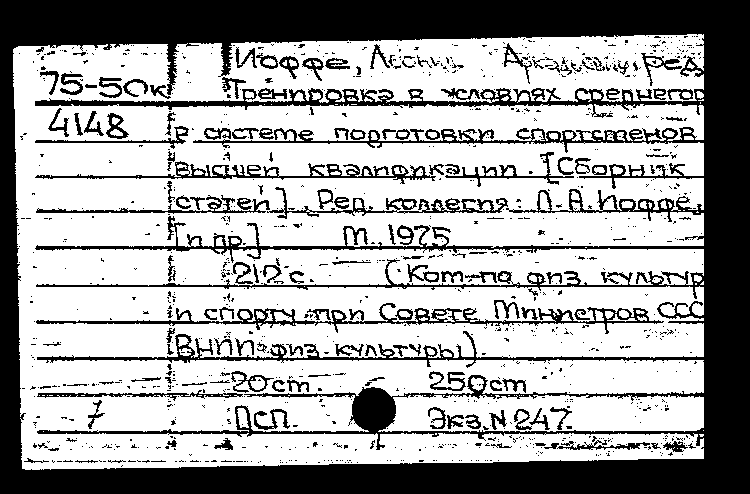 Иоффе, Леонид Аркадьевич, ред.
75-50к Тренировка в условиях среднегор
4148 в системе подготовки спортсменов
высшей квалификации. [Сборник
статей]. Ред. коллегия: Л. А. Иоффе,
[и др.] М., 1975.
212 с. (Ком-т по физ. культур
и спорту при Совете Министров ССС
ВНИИ физ. культуры).
20cm. 250cm
7 ДСП. Экз. N 247.